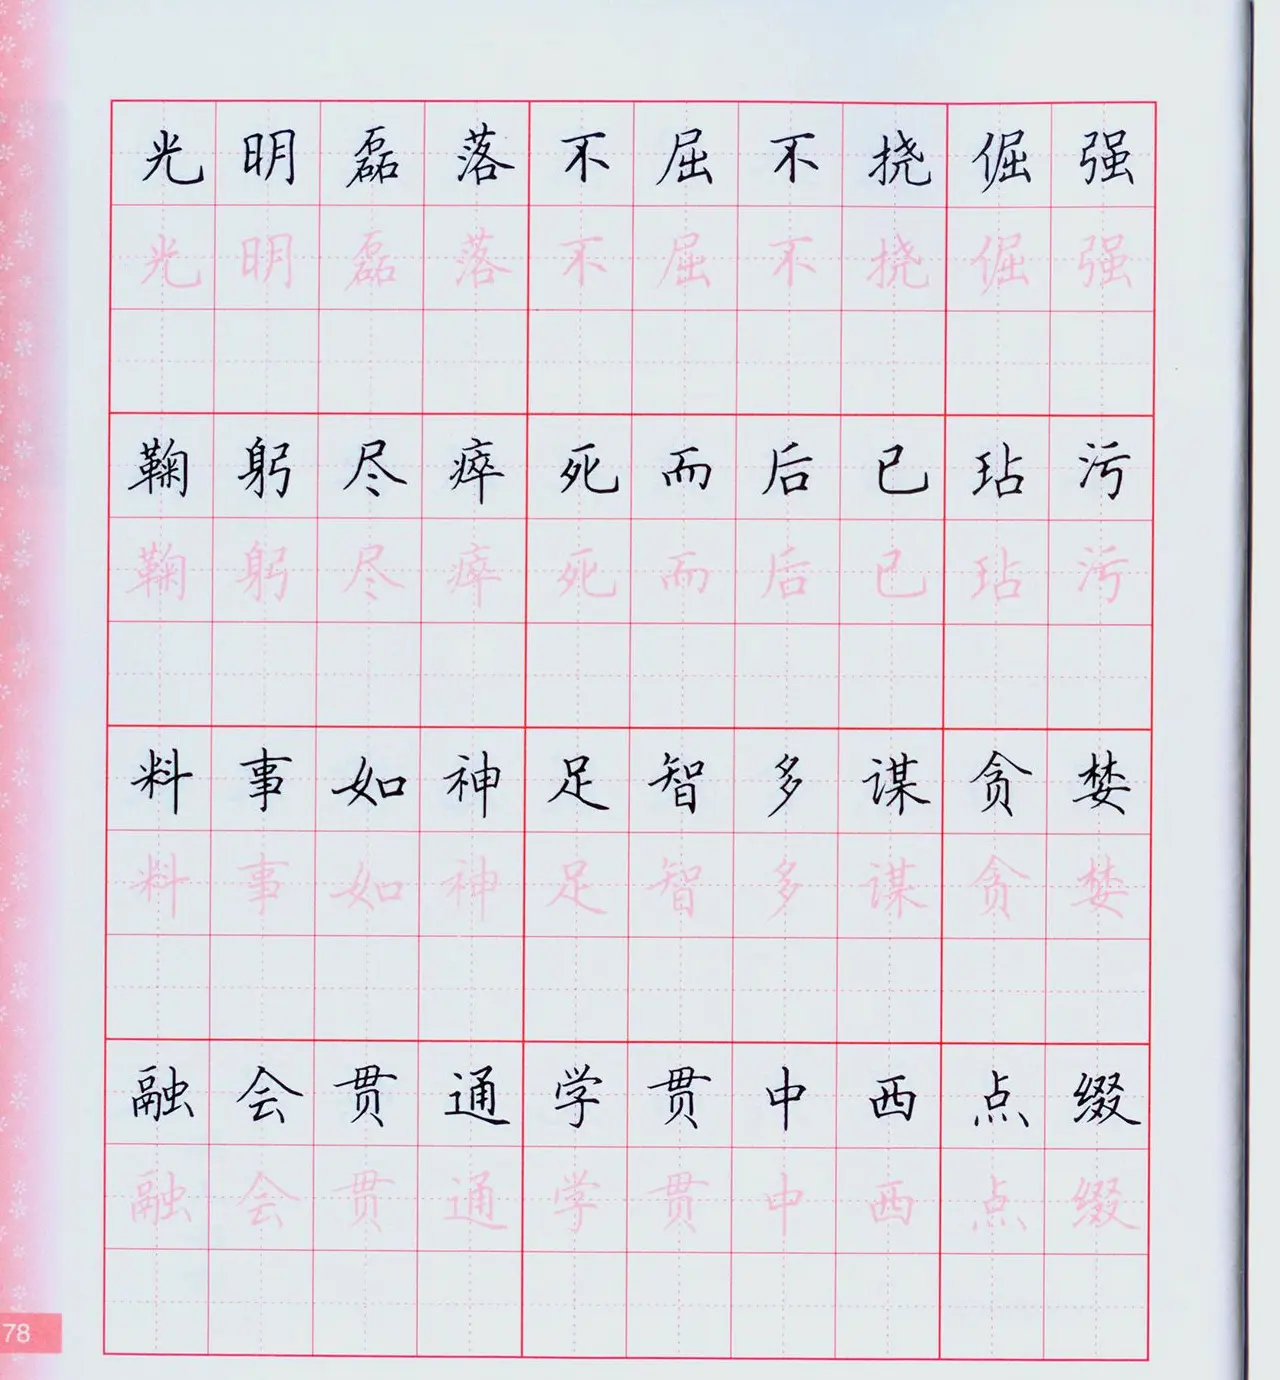 光明磊落不屈不挠倔强
光明磊落不屈不挠倔强
鞠躬尽瘁死而后已玷污
鞠躬尽瘁死而后已玷污
料事如神足智多谋贪婪
料事如神足智多谋贪婪
融会贯通学贯中西点缀
融会贯通学贯中西点缀
78